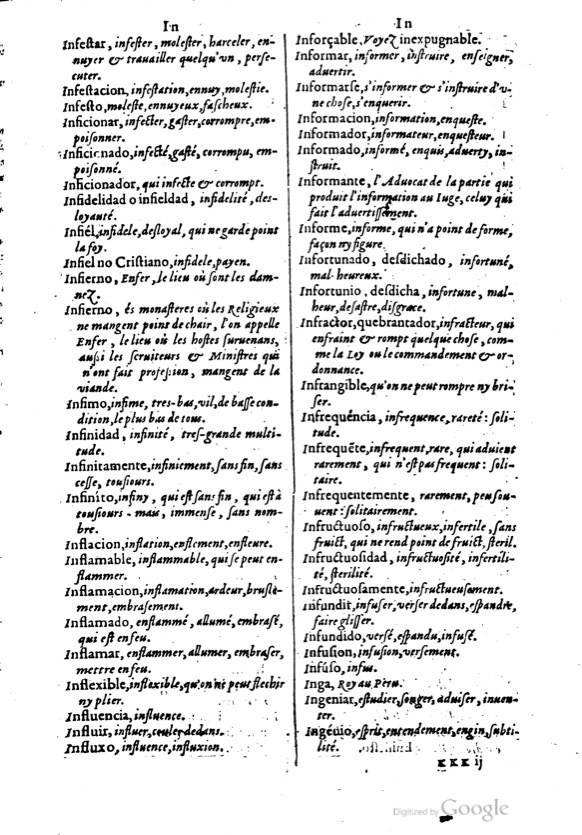 In
Infestar, infester, molester, harceler, en-
nuyer & trauailler quelqu'vn, perse-
cuter.
Infestacion, infestation, ennuy, molestie.
Infesto, moleste, ennuyeux, fascheux.
Inficionar, infecter, gaster, corrompre, em-
poisonner.
Inficionado, infecté, gasté, corrompu, em-
poisonné.
Inficionador, qui infecte & corrompt.
Infidelidad o infieldad, infidelité, des-
loyauté.
Infiél, infidele, desloyal, qui ne garde point
la foy.
Infiel no Cristiano, infidele, payen.
Infierno, Enfer, le lieu où sont les dam-
nez.
Infierno, és monasteres où les Religieux
ne mangent point de chair, l'on appelle
Enfer, le lieu où les hostes suruenans,
aussi les seruiteurs & Ministres qui
n'ont fait profession, mangent de la
viande.
Infimo, infime, tres-bas, vil, de basse con-
dition, le plus bas de tous.
Infinidad, infinité, tres-grande multi-
tude.
Infinitamente, infiniement, sans fin, sans
cesse, tousiours.
Infinito, infiny, qui est sans fin, qui est à
tousiours-mau, immense, sans nom-
bre.
Inflacion, inflation, enflement, enfleure.
Inflamable, inflammable, qui se peut en-
flammer.
Inflamacion, inflamation, ardeur, brusle-
ment, embrasement.
Inflamado, enflammé, allumé, embrasé,
qui est en feu.
Inflamar, enflammer, allumer, embraser,
mettre en feu.
Inflexible, inflexible, qu'on ne peut flechir
ny plier.
Influencia, influence.
Influir, influer, couler dedans.
Influxo, influence, influxion.
In
Inforçable, Voyez inexpugnable.
Informar, informer, instruire, enseigner,
aduertir.
Informarse, s'informer & s'instruire d'v-
ne chose, s'enquerir.
Informacion, information, enqueste.
Informador, informateur, enquesteur.
Informado, informé, enquis, aduerty, in-
struit.
Informante, l'Aduocat de la partie qui
produit l'information au Iuge, celuy qui
fait l'aduertissement.
Informe, informe, qui n'a point de forme,
façon ny figure.
Infortunado, desdichado, infortuné,
mal-heureux.
Infortunio, desdicha, infortune, mal-
heur, desastre, disgrace.
Infractor, quebrantador, infracteur, qui
enfraint & rompt quelque chose, com-
me la Loy ou le commandement & or-
donnance.
Infrangible, qu'on ne peut rompre ny bri-
ser.
Infrequência, infrequence, rareté: soli-
tude.
Infrequẽte, infrequent, rare, qui aduient
rarement, qui n'est pas frequent: soli-
taire.
Infrequentemente, rarement, peu sou-
uent: solitairement.
Infructuoso, infructueux, infertile, sans
fruict, qui ne rend point de fruict, steril.
Infructuosidad, infructuosité, infertili-
té, sterilité.
Infructuosamente, infructueusement.
Infundir, infuser, verser dedans, espandre,
faire glisser.
Infundido, versé, espandu, infusé.
Infusion, infusion, versement.
Infúso, infus.
Inga, Roy au Peru.
Ingeniar, estudier, songer, aduiser, inuen-
ter.
Ingénio, esprit, entendement, engin, subti-
lité.
xxx ij
Digitized by Google